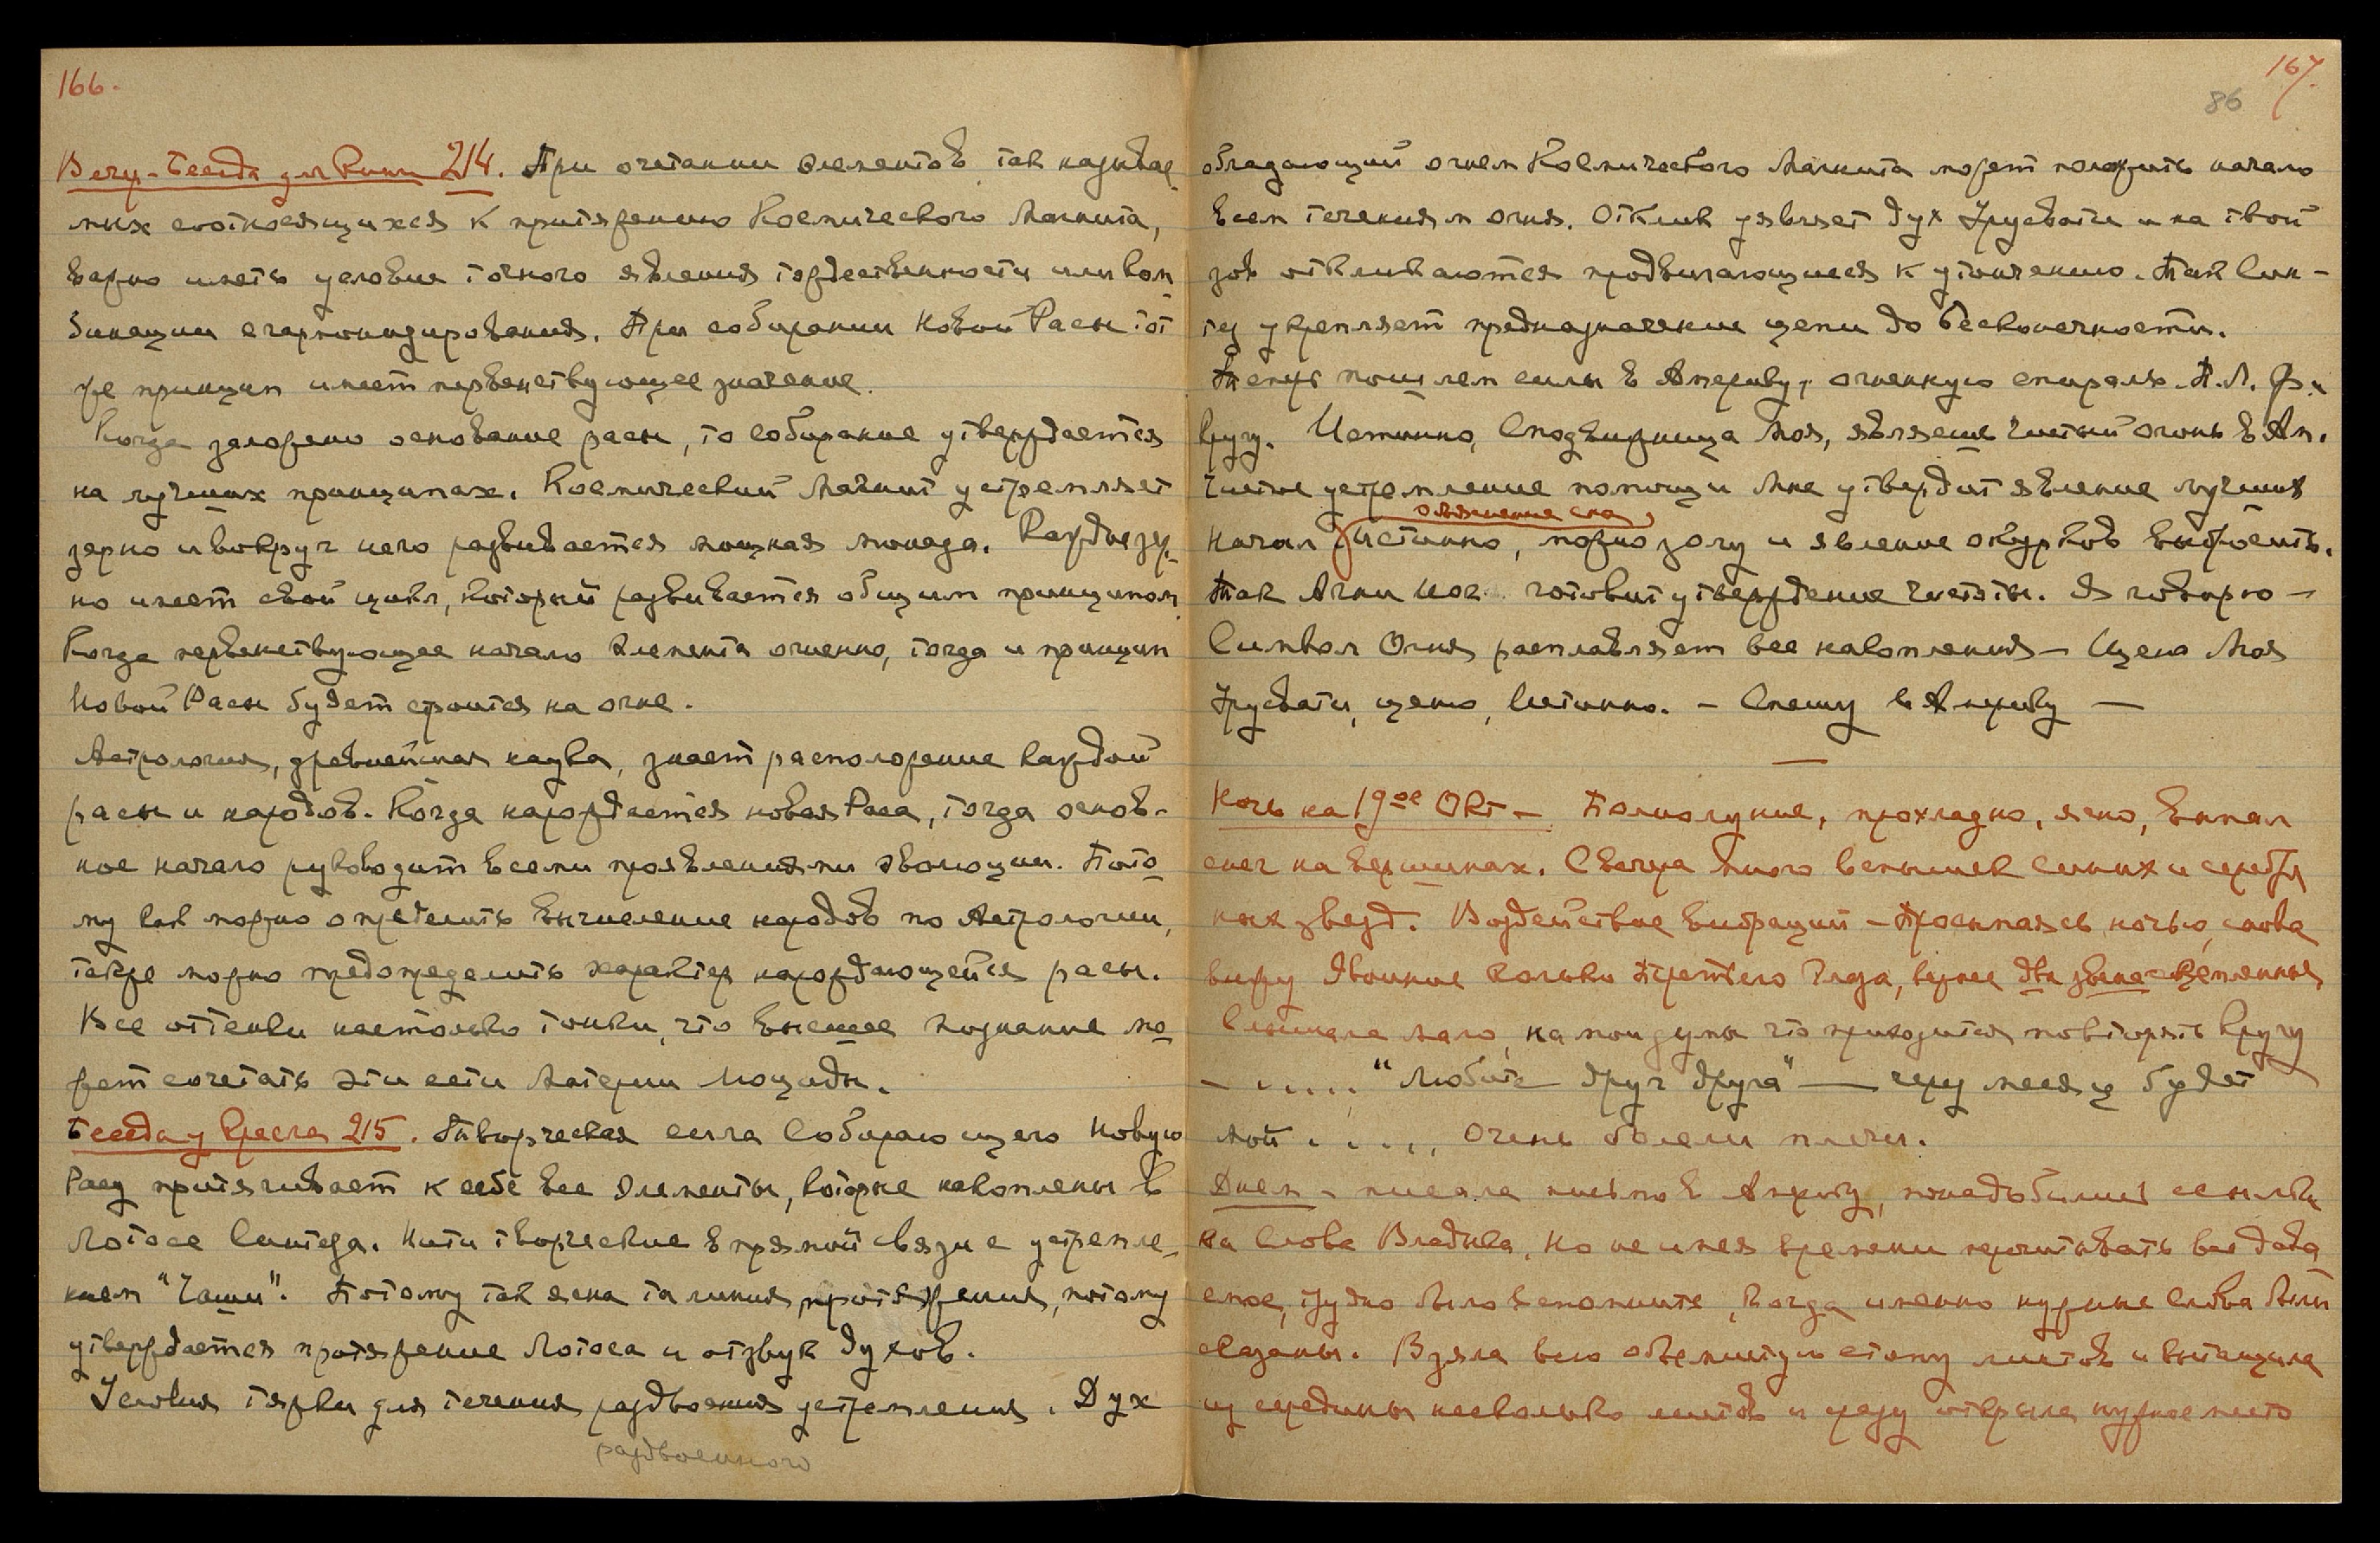 166.
Вечер - Беседа для Книги 214. При очетании элементов так называе
мых соотносящихся к притяжению Космического Магнита,
важно иметь условие точного явления тождественности или ком
бинации сгармонизирования. При собирании Новой Расы тот
же принцип имеет первенствующее значение.
Когда заложено основание расы, то собирание утверждается
на лучших принципах. Космический Магнит устремляет
зерно и вокруг него развивается мощная монада. Каждое зер
но имеет свой цикл, который развивается общим принципом.
Когда первенствующее начало элемента огненно, тогда и принцип
Новой Расы будет строится на огне.
Астрология, древнейшая наука, знает расположение каждой
расы и народов. Когда нарождается новая Раса, тогда основ-
ное начало руководит всеми проявлениями эволюции. Пото
му как можно определить вычисление народов по Астрологии,
также можно предопределить характер нарождающейся расы.
Все оттенки настолько тонки, что высшее познание мо
жет сочетать эти сети Материи Люциды.
Беседа у Кресла 215. Творческая сила Собирающего Новую
Расу притягивает к себе все элементы, которые накоплены в
Лотосе Синтеза. Нити творческие в прямой связи с устремле
нием "Чаши". Потому так ясна та линия притяжения, потому
утверждается притяжение Лотоса и отзвук духов.
Условия тяжки для течения раздвоения устремления. Дух
раздвоенного
167.
86
обладающий огнем Космического Магнита может положить начало
всем течениям огня. Отклик уявляет дух Урусвати и на твой
зов откликаются продвигающиеся к утончению. Так Син-
тез укрепляет предназначение цепи до бесконечности.
Теперь пошлем силы в Америку, огненную спираль. П. Л. Ф. и
кругу. Истинно, Сподвижница Моя, являешь чистый огонь в Ам.
Чистое устремление помощи Мне утвердит явление лучших
объяснение сна
начал. Истинно, можно золу и явление окурков выбросить.
Так Агни Йог готовит утверждение чистоты. Я говорю -
Символ Огня расплавляет все накопления - Ценю Моя
Урусвати, ценю, Истинно. - Спешу в Америку -
Ночь на 19ое Окт - Полнолуние, прохладно, ясно, выпал
снег на вершинах. С вечера много вспышек синих и серебря
ных звезд. Воздействие вибраций - Просыпаясь ночью, снова
вижу двойное кольцо Третьего Глаза, вернее два звена сцепленных
Слышала мало, на мои думы что приходится повторять кругу
- ..... "Любите друг друга" - через месяц будет
мой ..... Очень болели плечи.
Днем - писала письмо в Америку, понадобились ссылки
на Слова Владыки, но не имея времени перечитывать все дава
емое, трудно было вспомнить, когда именно нужные слова были
сказаны. Взяла всю объемистую стопу листов и вытащила
из середины несколько листов и сразу открыла нужное место